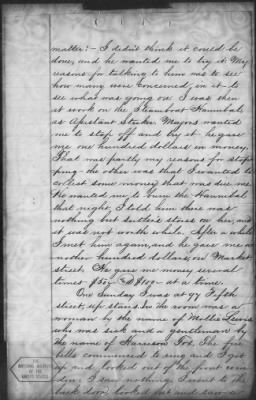 matter:- I didn't think it could be
done, and he wanted me to try it. My
reasons for talking to him was to see
how many were concerned in it - to
see what was going on. I was then
at work on the Steamboat Hannibal
as Assistant Stoker. Majors wanted
me to stop off and try it. he gave
me one hundred dollars in money.
That was partly my reasons for stop
ping - the other was that I wanted to
collect some money that was due me.
He wanted me to burn the Hannibal
that night, I told him there was
nothing but sutler's stores on her, and
it was not worth while. After a while
I met him again, and he gave me a
nother hundred dollars, on Market
street. He gave me money several
times $50 & $100 - at a time.
One Sunday I was at 97 Fifth
street, up stairs in the room with a
woman by the name of Mollie Lewis
who was sick and a gentleman by
the name of Harrison Fox. The fire
bells commenced to ring and I got
up and looked out of the front
I saw nothing, I went to the
back door looked out and saw
THE NATIONAL ARCHIVES
OF THE
UNITED STATES